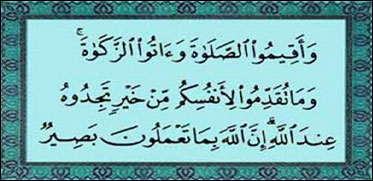 وَأَقِيمُوا۟ ٱلصَّلَوٰةَ وَءَاتُوا۟ ٱلزَّكَوٰةَ ۚ
وَمَا تُقَدِّمُوا۟ لِأَنفُسِكُم مِّنْ خَيْرٍ تَجِدُوهُ
عِندَ ٱللَّهِ ۗ إِنَّ ٱللَّهَ بِمَا تَعْمَلُونَ بَصِيرٌ